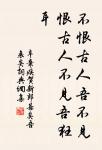 不恨古人吾不見
恨古人不見吾狂
耳
辛棄疾賀新郎甚矣吾
衰矣詞典網集